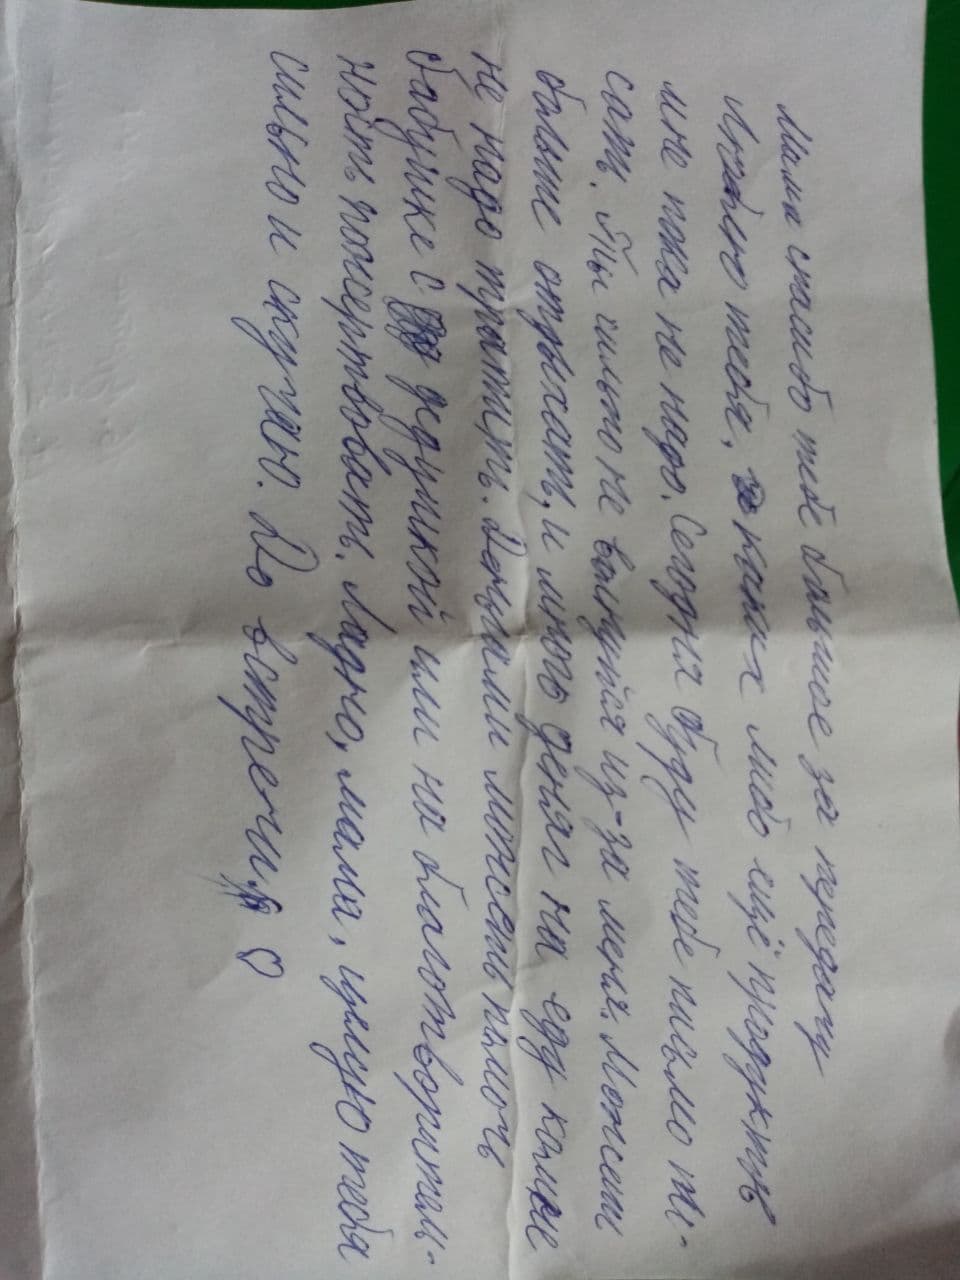 Мама спасибо тебе большое за передачу
Люблю тебя, каких либо ещё продуктов
мне пока не надо. Сегодня буду тебе письмо пи-
сать. Ты сильно не волнуйся из-за меня. Можешь
больше отдыхать, и много денег на еду
не надо тратить. Деньгами можешь помочь
бабушке с дедушкой или на благотворитель-
ность пожертвовать. Ладно, мама, целую тебя
сильно и скучаю. До встречи ♡